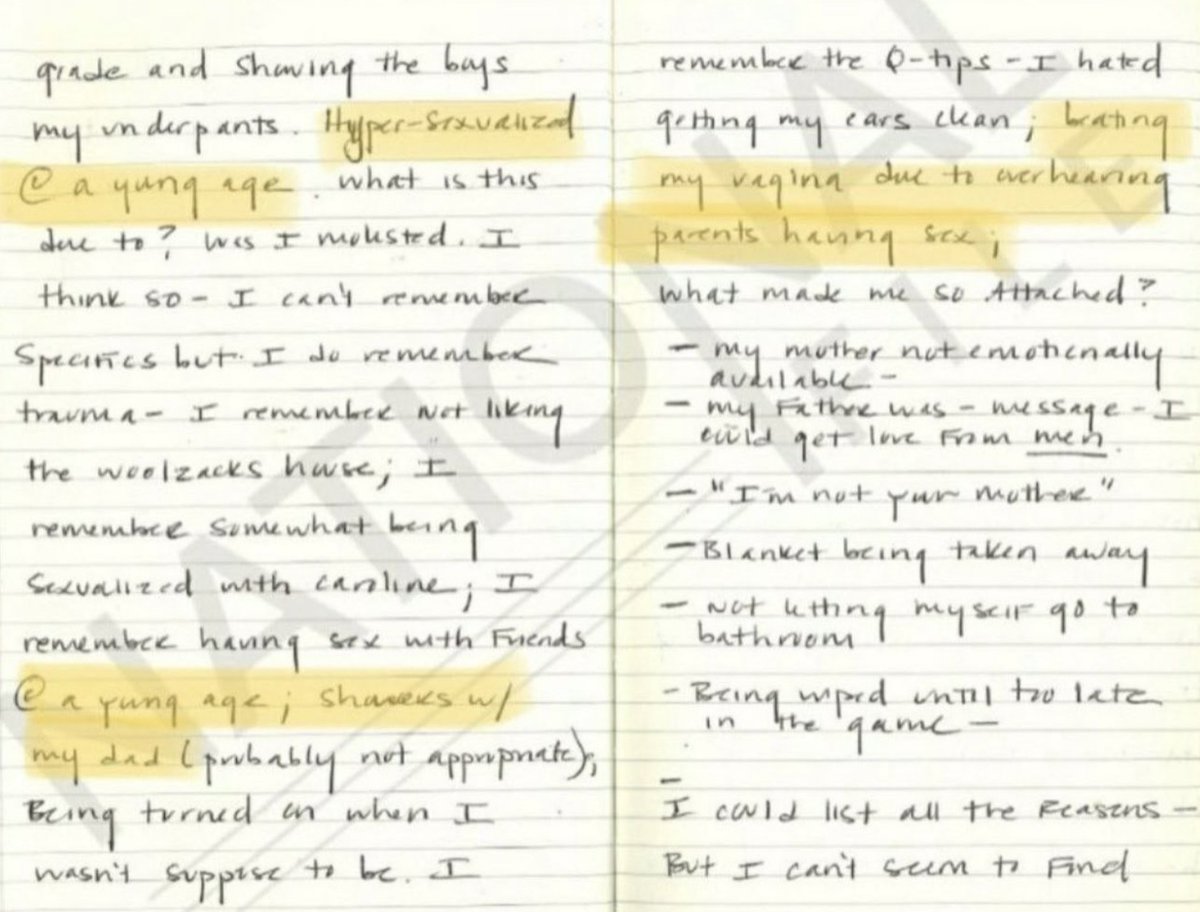 grade and showing the boys
my underpants. Hyper-sexualized
@ a yung age. what is this
due to? Was I molested. I
think so - I can't remember
specifics but I do remember
trauma - I remember not liking
the woolzacks house; I
remember somewhat being
sexualized with caroline; I
remember having sex with friends
@ a yung age; showers w/
my dad (probably not appropriate);
Being turned on when I
wasn't suppose to be. I
remember the Q-tips - I hated
getting my ears clean;
my vagina due to overhearing
parents having sex;
What made me so Attached?
- my mother not emotionally
available -
- my Father was - message - I
could get love from men.
- "I'm not your mother"
- Blanket being taken away
- not letting myself go to
bathroom
- Being wiped until too late
in the game -
-
I could list all the Reasons -
But I can't seem to Find
NATIONAL
FILE